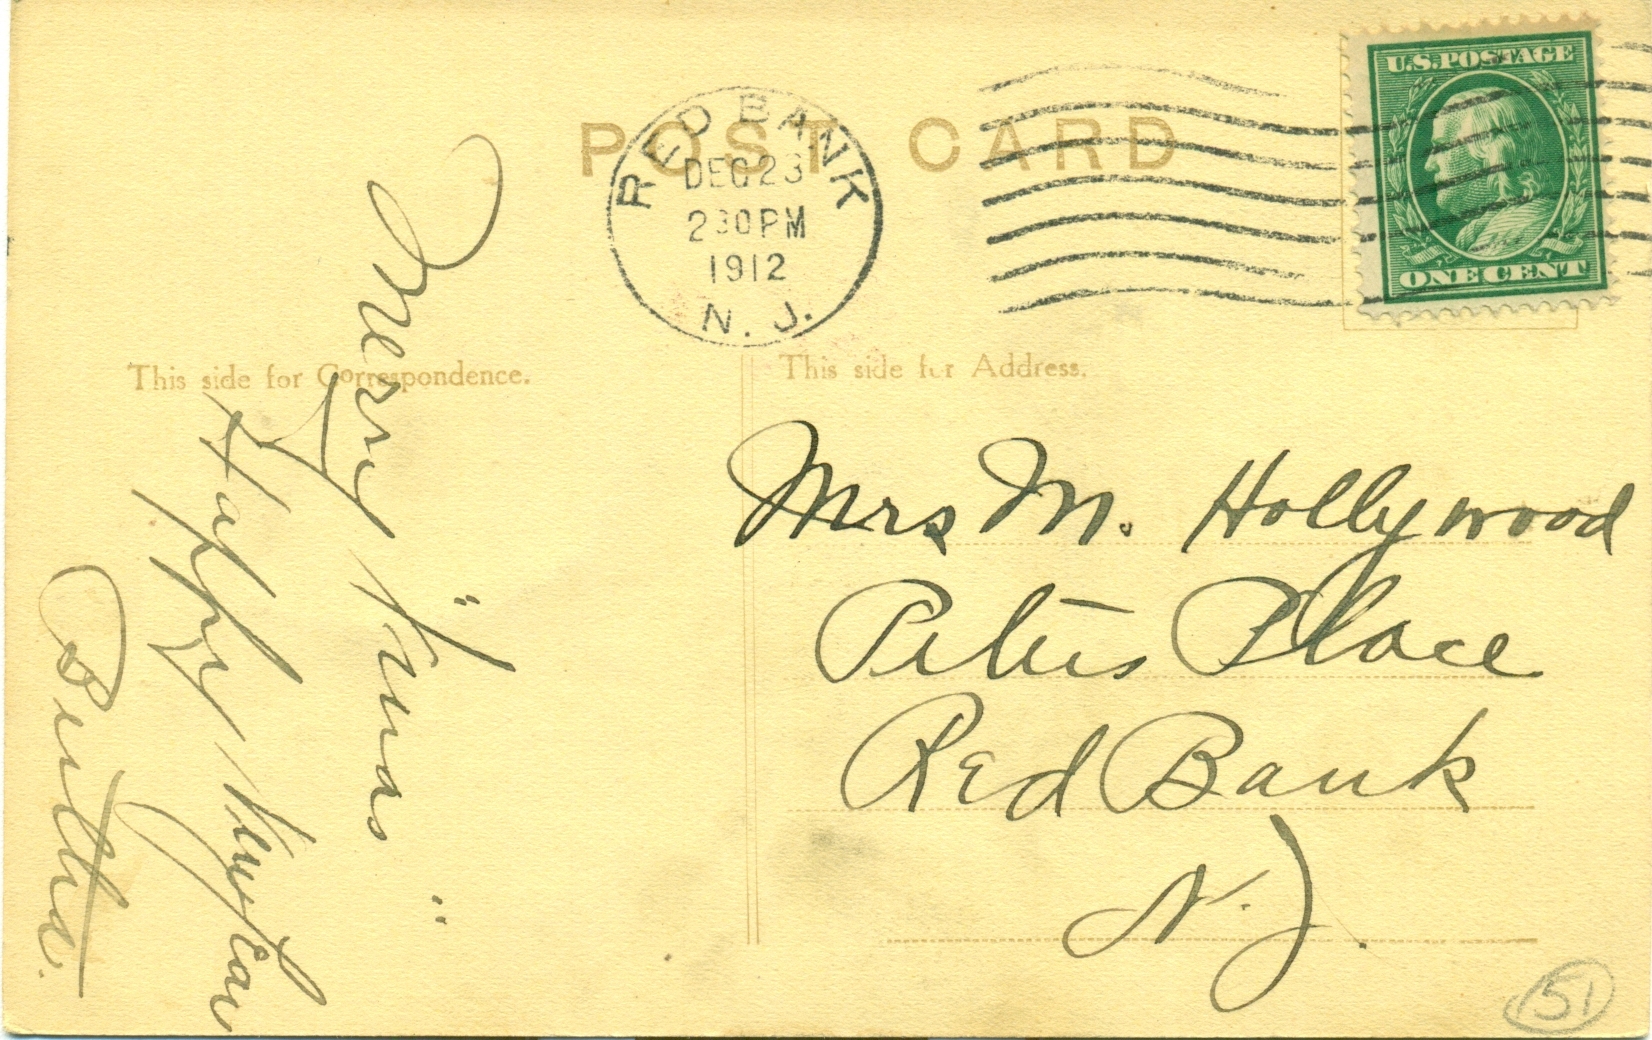 POST CARD
RED BANK
DEC 23
230 PM
1912
N. J.
U.S. POSTAGE
ONE CENT
This side for Correspondence.
This side for Address.
Merry "Xmas"
Happy New Year
Bertha.
Mrs M. Hollywood
Peters Place
Red Bank
N. J.
51